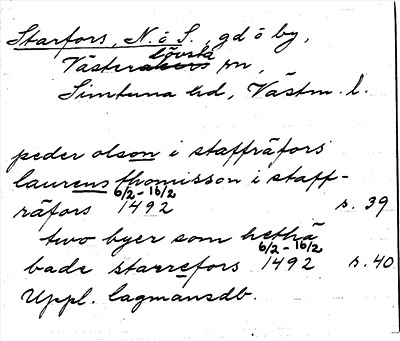 Starfors, N. o S., gd o by,
Västerlövsta sn,
Simtuna hd, Västm. l.
peder olson i staffräfors
laurens thomisson i staff-
räfors 6/2-16/2 1492 s. 39
two byer som hethä
bade starrefors 6/2-16/2 1492 s. 40
Uppl. lagmansdb.